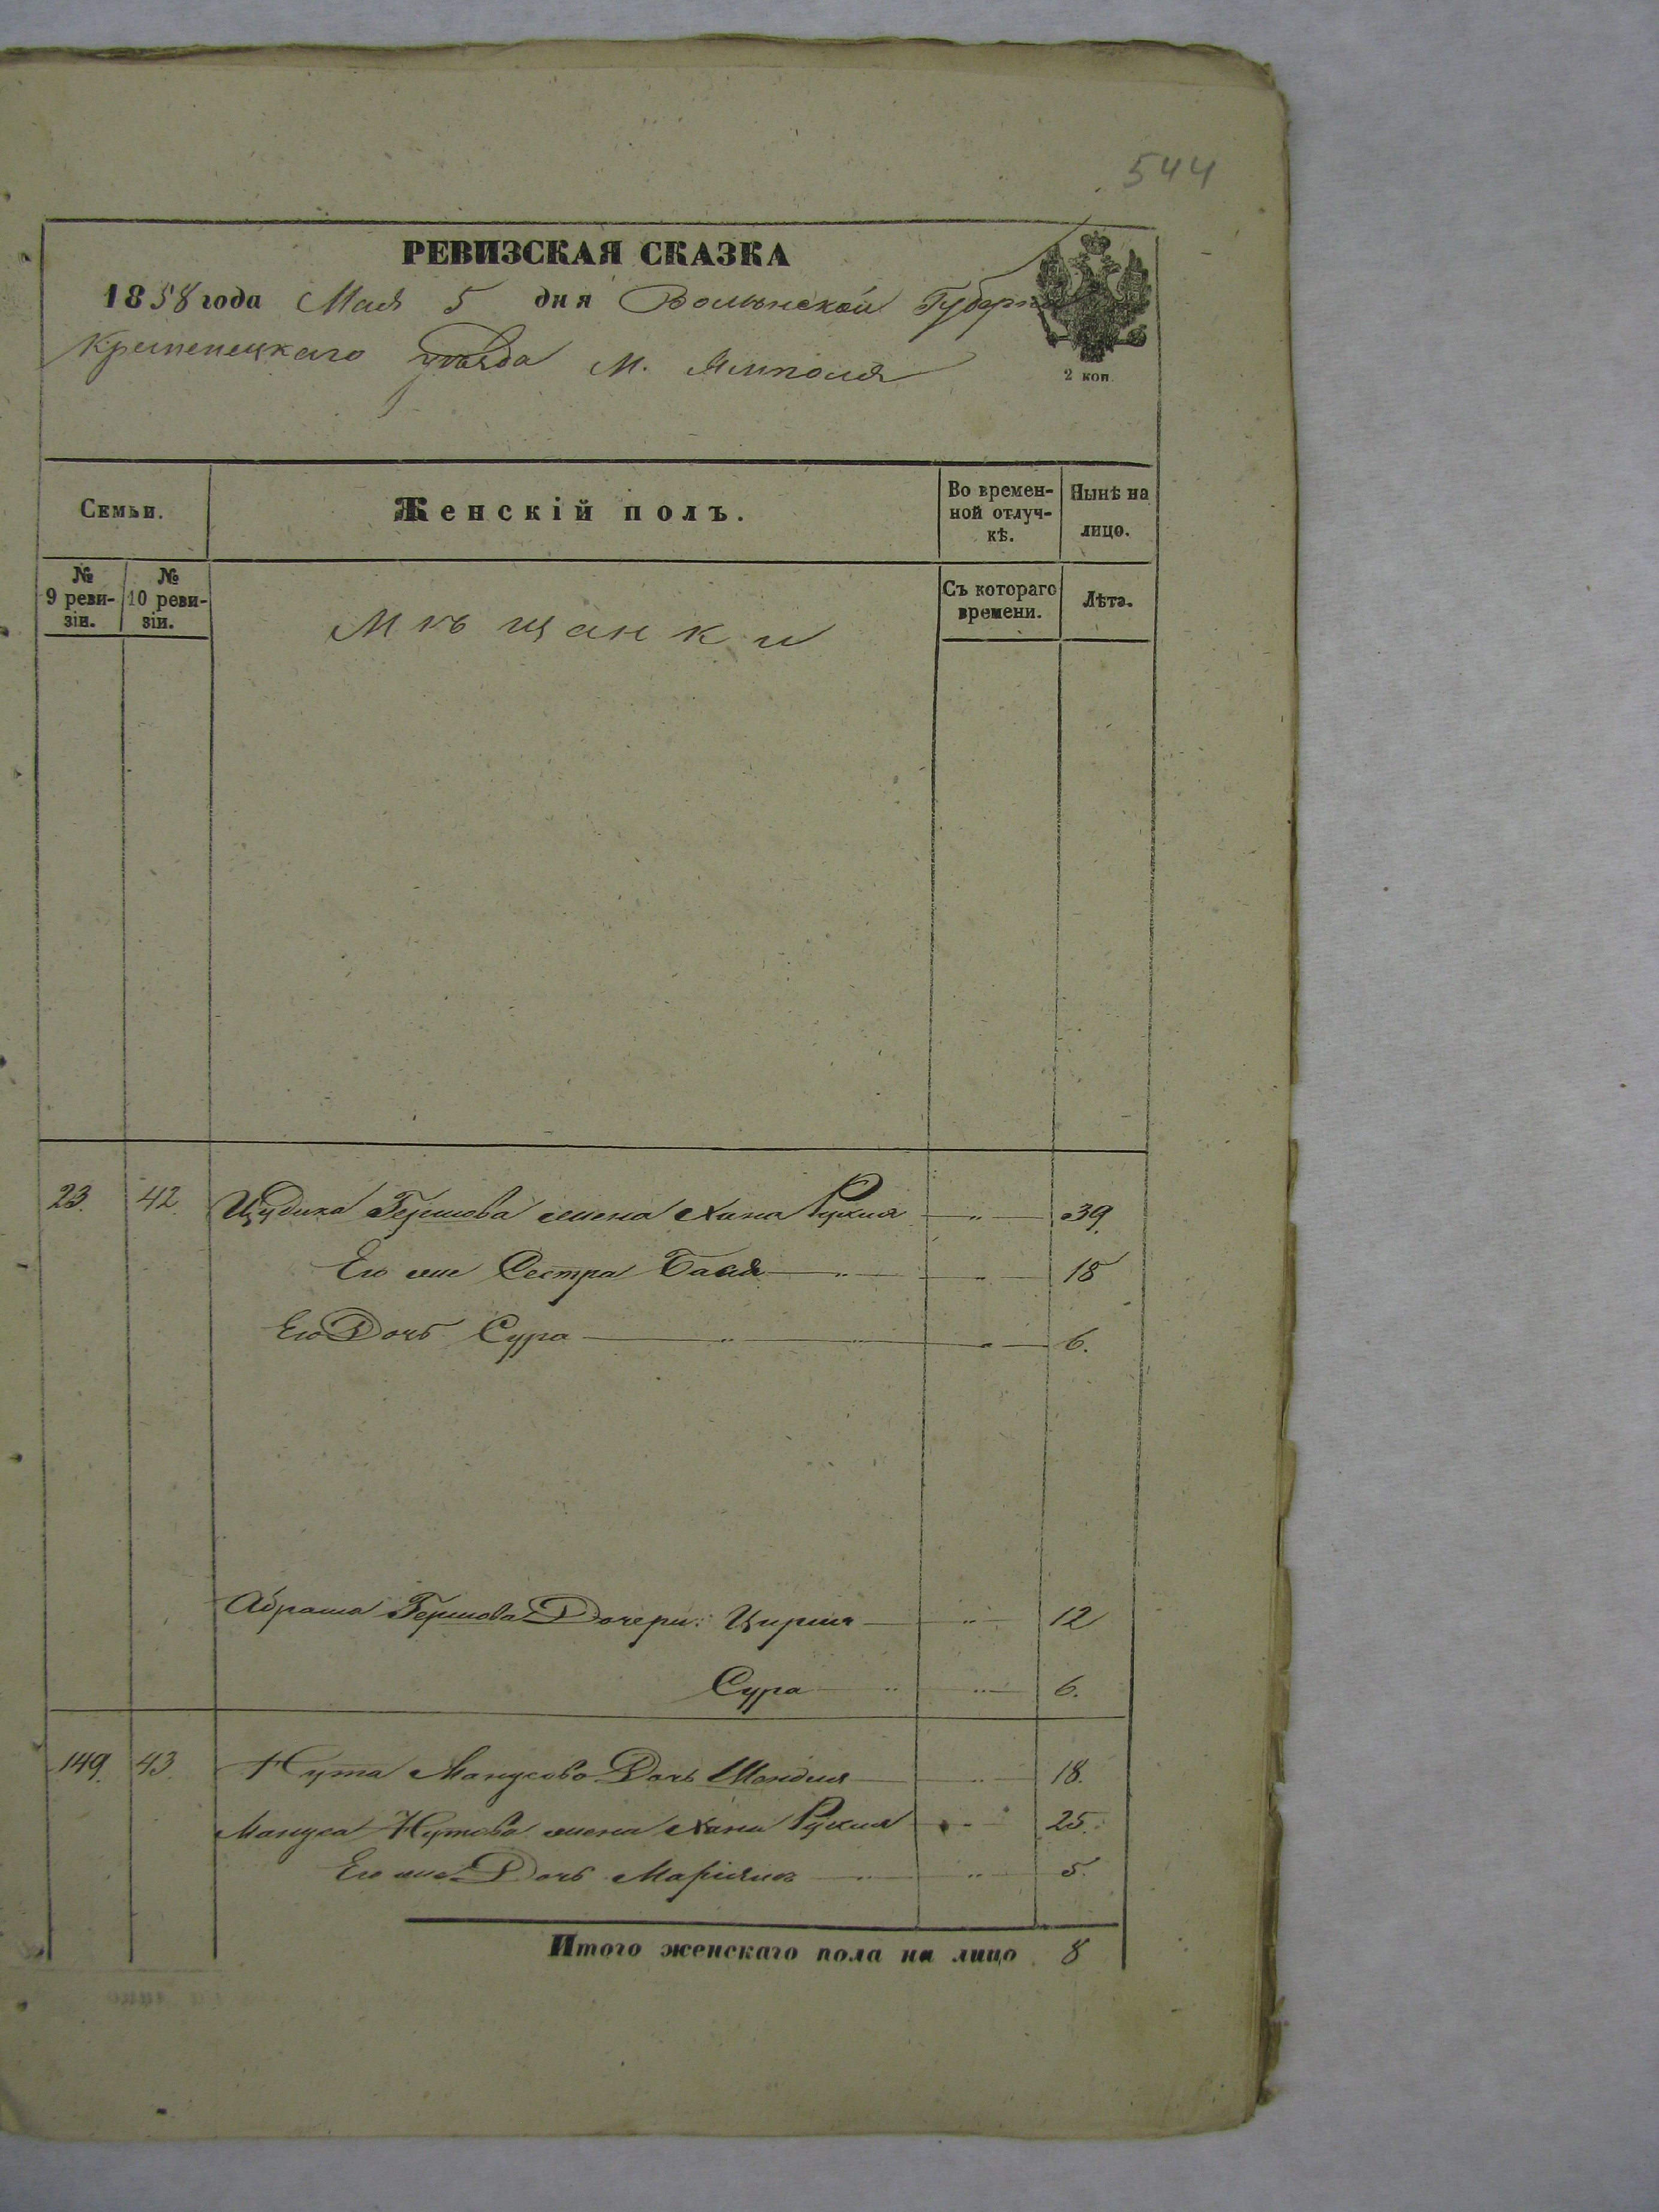 544
РЕВИЗСКАЯ СКАЗКА
1858 года Мая 5 дня Волынской Губерніи
Кременецкаго уѣзда М. Ямполя
2 коп.
Семьи.
Женскій полъ.
Во времен-
ной отлуч-
кѣ.
Нынѣ на
лицо.
№
9 реви-
зіи.
№
10 реви-
зіи.
Мѣщанки
Съ котораго
времени.
Лѣта.
23. 42. Цудика Гершова жена Хана Рухля " 39.
Его же Сестра Бася " " 18
Его Дочь Сура " " 6.
Абрама Гершова Дочери: Цирля " 12
Сура " " 6.
149. 43. Нута Манусова Дочь " 18.
Мануса Нутова жена Хана Рухля " 25.
Его же Дочь " " 5.
Итого женскаго пола на лицо 8